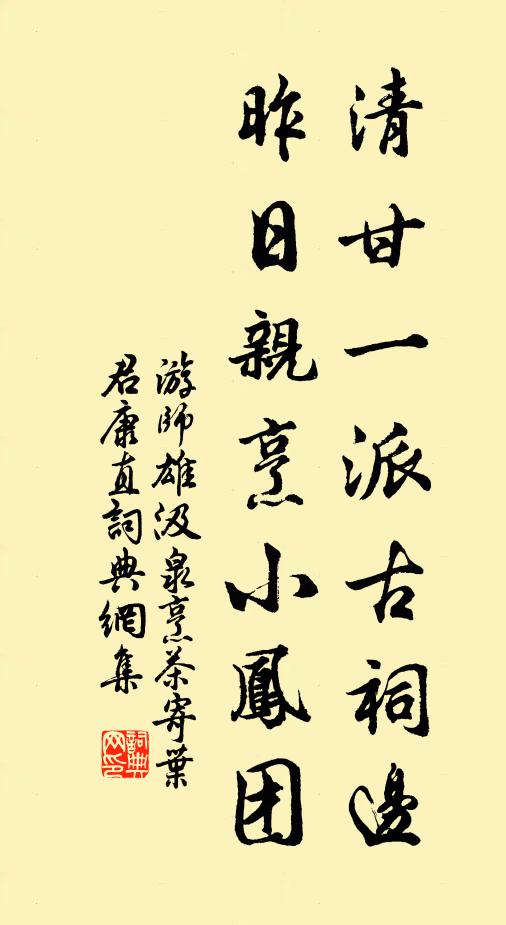 清甘一派古祠邊
昨日親烹小鳳团
游師雄汲泉烹茶寄葉
君康直詞典網集
詞典
网印